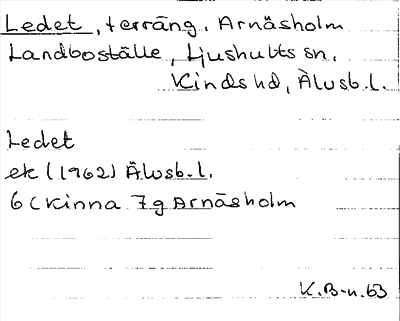 Ledet, terräng, Arnäsholm
Landboställe, Ljushults sn.
Kinds hd, Älvsb.l.
Ledet
ek (1962) Älvsb.l.
6 C Kinna 7g Arnäsholm
K.B-n. 63